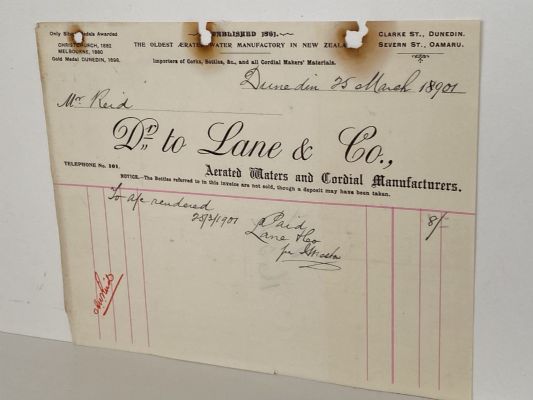 Only Silver Medals Awarded
CHRISTCHURCH, 1882
MELBOURNE, 1880
Gold Medal DUNEDIN, 1898.
ESTABLISHED 1861.
THE OLDEST ÆRATED WATER MANUFACTORY IN NEW ZEALAND
Importers of Corks, Bottles, &c., and all Cordial Makers' Materials.
CLARKE ST., DUNEDIN.
SEVERN ST., OAMARU.
Dunedin 25 March 18901
Mr. Reid
Dr. to Lane & Co.,
TELEPHONE No. 101.
Aerated Waters and Cordial Manufacturers.
NOTICE.—The Bottles referred to in this invoice are not sold, though a deposit may have been taken.
To a/c rendered 8/-
25/3/1901 Paid
Lane & Co
per